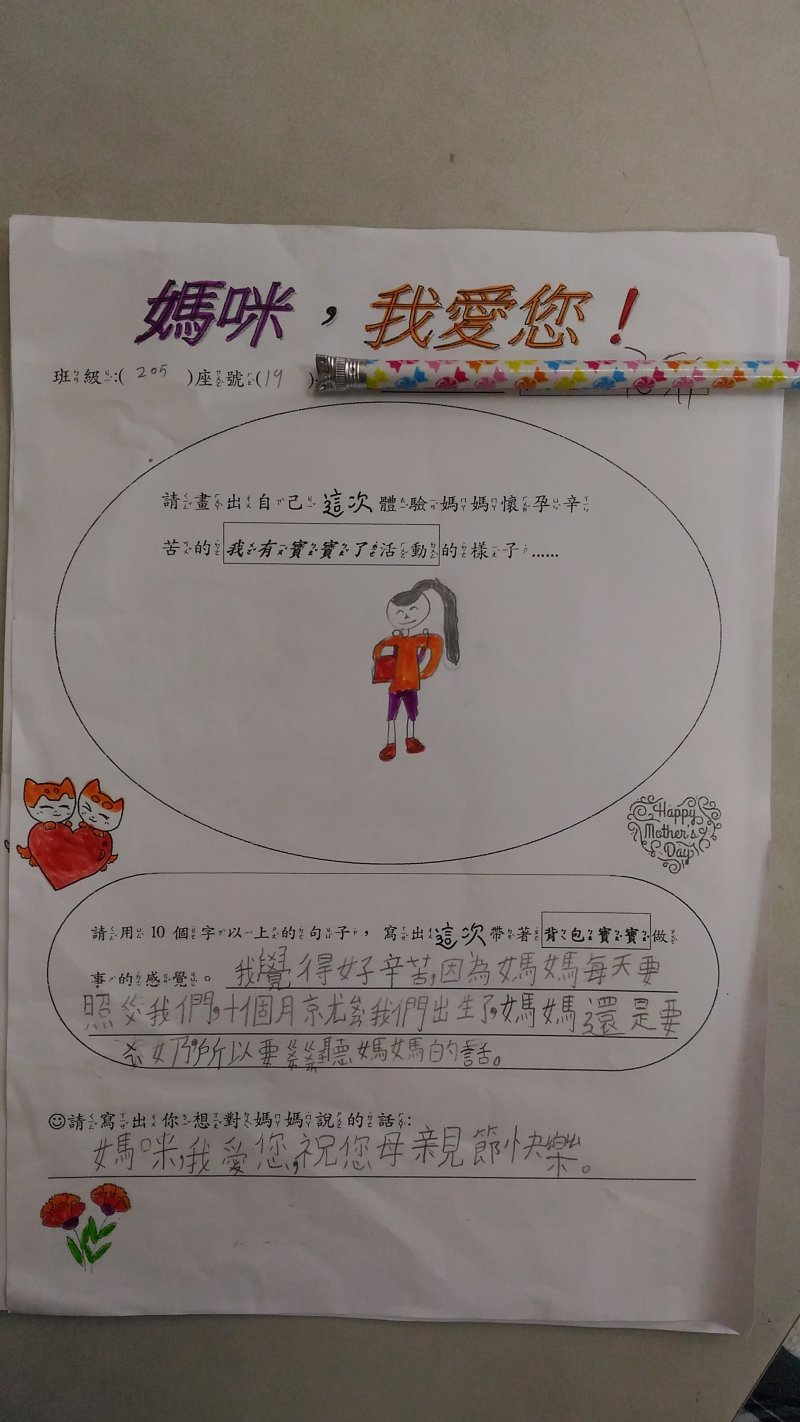 媽咪，我愛您！
班級:( 205 )座號(19 )
請畫出自己這次體驗媽媽懷孕辛
苦的我有寶寶了活動的樣子......
Happy
Mother's
Day
請用 10 個字以上的句子，寫出這次帶著背包寶寶做
事的感覺。我覺得好辛苦,因為媽媽每天要
照 我們,十個月 我們出生了,媽媽還是要
奶,所以要 聽媽媽的話。
☺請寫出你想對媽媽說的話:
媽咪,我愛您,祝您母親節快樂。